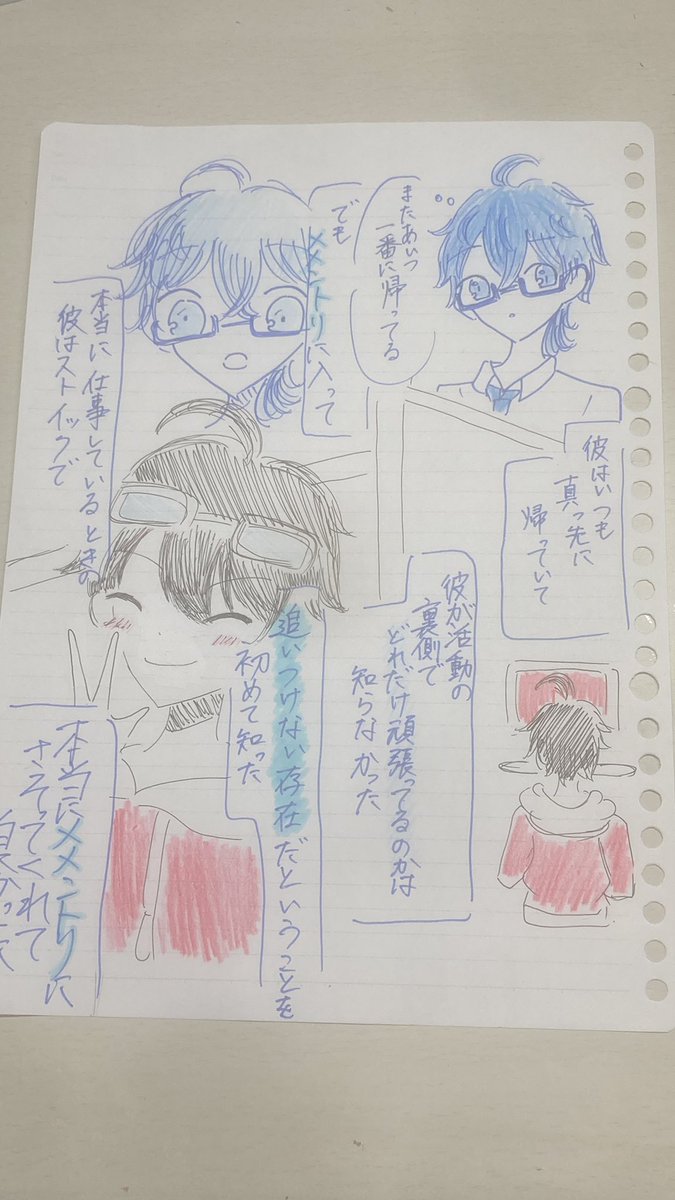 またあいつ
一番に帰ってる
彼はいつも
真っ先に
帰っていて
彼が活動の
裏側で
どれだけ頑張ってるのかは
知らなかった
でも
メメントリに入って
本当に仕事しているときの
彼はストイックで
追いつけない存在だということを
初めて知った
本当にメメントリに
さそってくれて